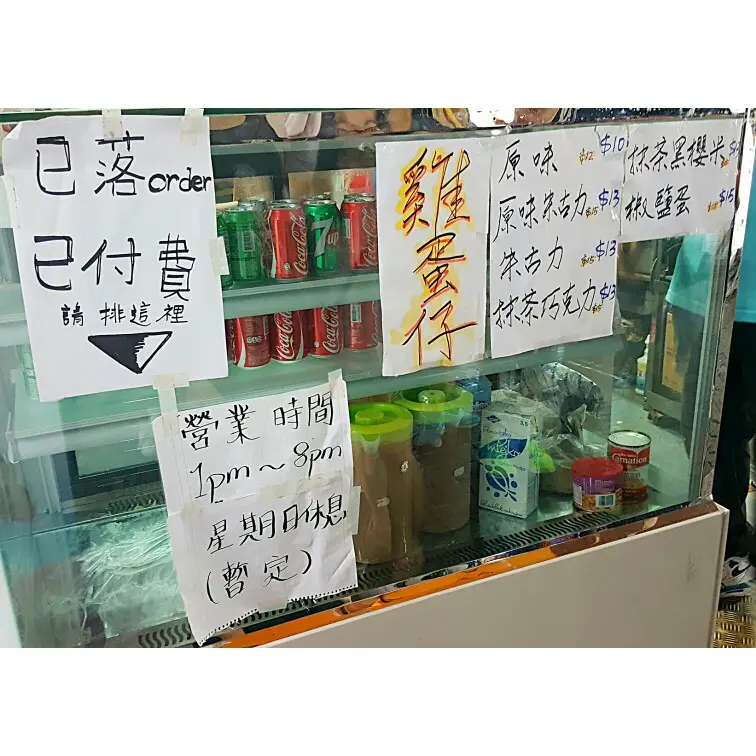 已落order
已付費
請排這裡
營業時間
1pm～8pm
星期日休息
(暫定)
雞蛋仔
原味 $12 $10
原味朱古力 $15 $13
朱古力 $15 $13
抹茶巧克力 $15 $13
抹茶黑櫻米
椒鹽蛋 $15
Coca-Cola
7up
Coca-Cola
Coca-Cola
Coca-Cola
Carnation